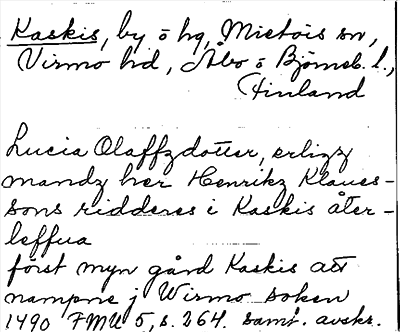 Kaskis, by o hg, Mietois sn,
Virmo hd, Åbo o Björneb. l.,
Finland
Lucia Olaffzdotter, erligz
mandz her Henrikz Klaues-
sons ridderes i Kaskis åter-
leffua
först myn gård Kaskis att
nampne j Wirmo soken
1490 FMU 5, s. 264. samt. avskr.